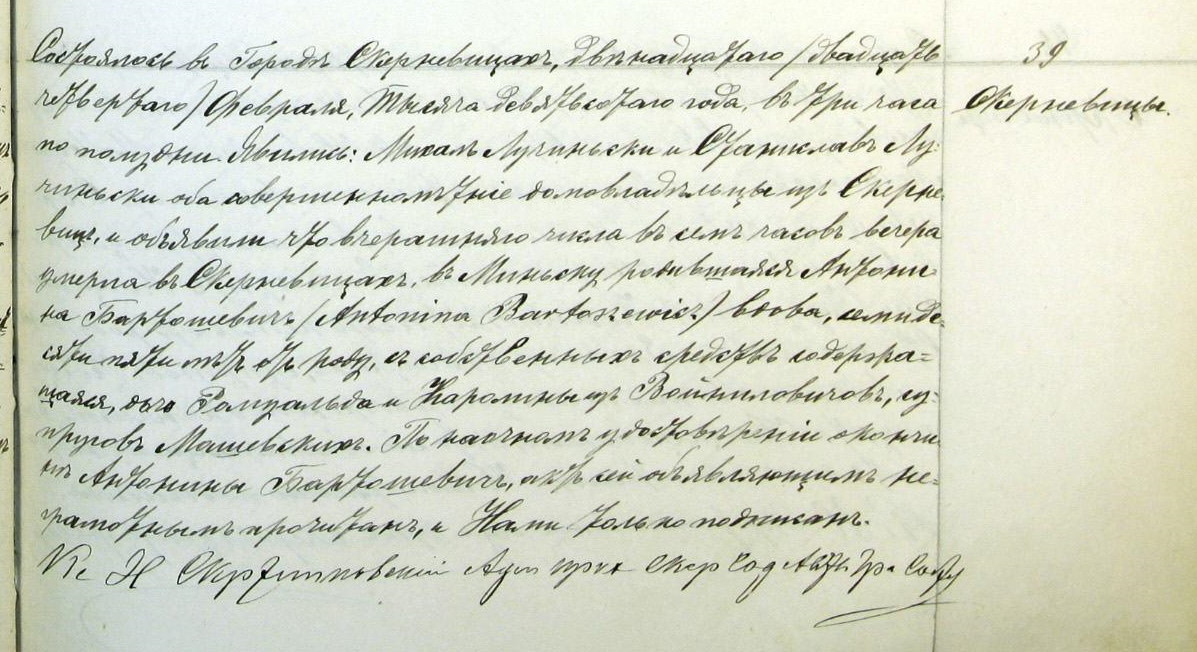 Состоялось въ Городѣ Скерневицахъ, двѣнадцатаго /двадцать
39
четвертаго/ Февраля, тысяча девятьсотаго года, въ три часа
Скерневицы.
по полудни. Явились: Михалъ Лучиньски и Станиславъ Лу-
чиньски оба совершеннолѣтніе домовладѣльцы изъ Скерне-
вицъ, и объявили что вчерашняго числа въ семь часовъ вечера
умерла въ Скерневицахъ, въ Миньску родившаяся Антони-
на Бартошевичъ /Antonina Bartoszewicz/ вдова, семиде-
сяти пяти лѣтъ отъ роду, съ собственныхъ средствъ содержа-
щаяся, дочь Ромуальда и Каролины изъ Войниловичовъ, су-
пруговъ Машевскихъ. По наочномъ удостовѣреніи о кончи-
нѣ Антонины Бартошевичъ, актъ сей объявляющимъ не-
грамотнымъ прочитанъ, и Нами только подписанъ.
Кс Н